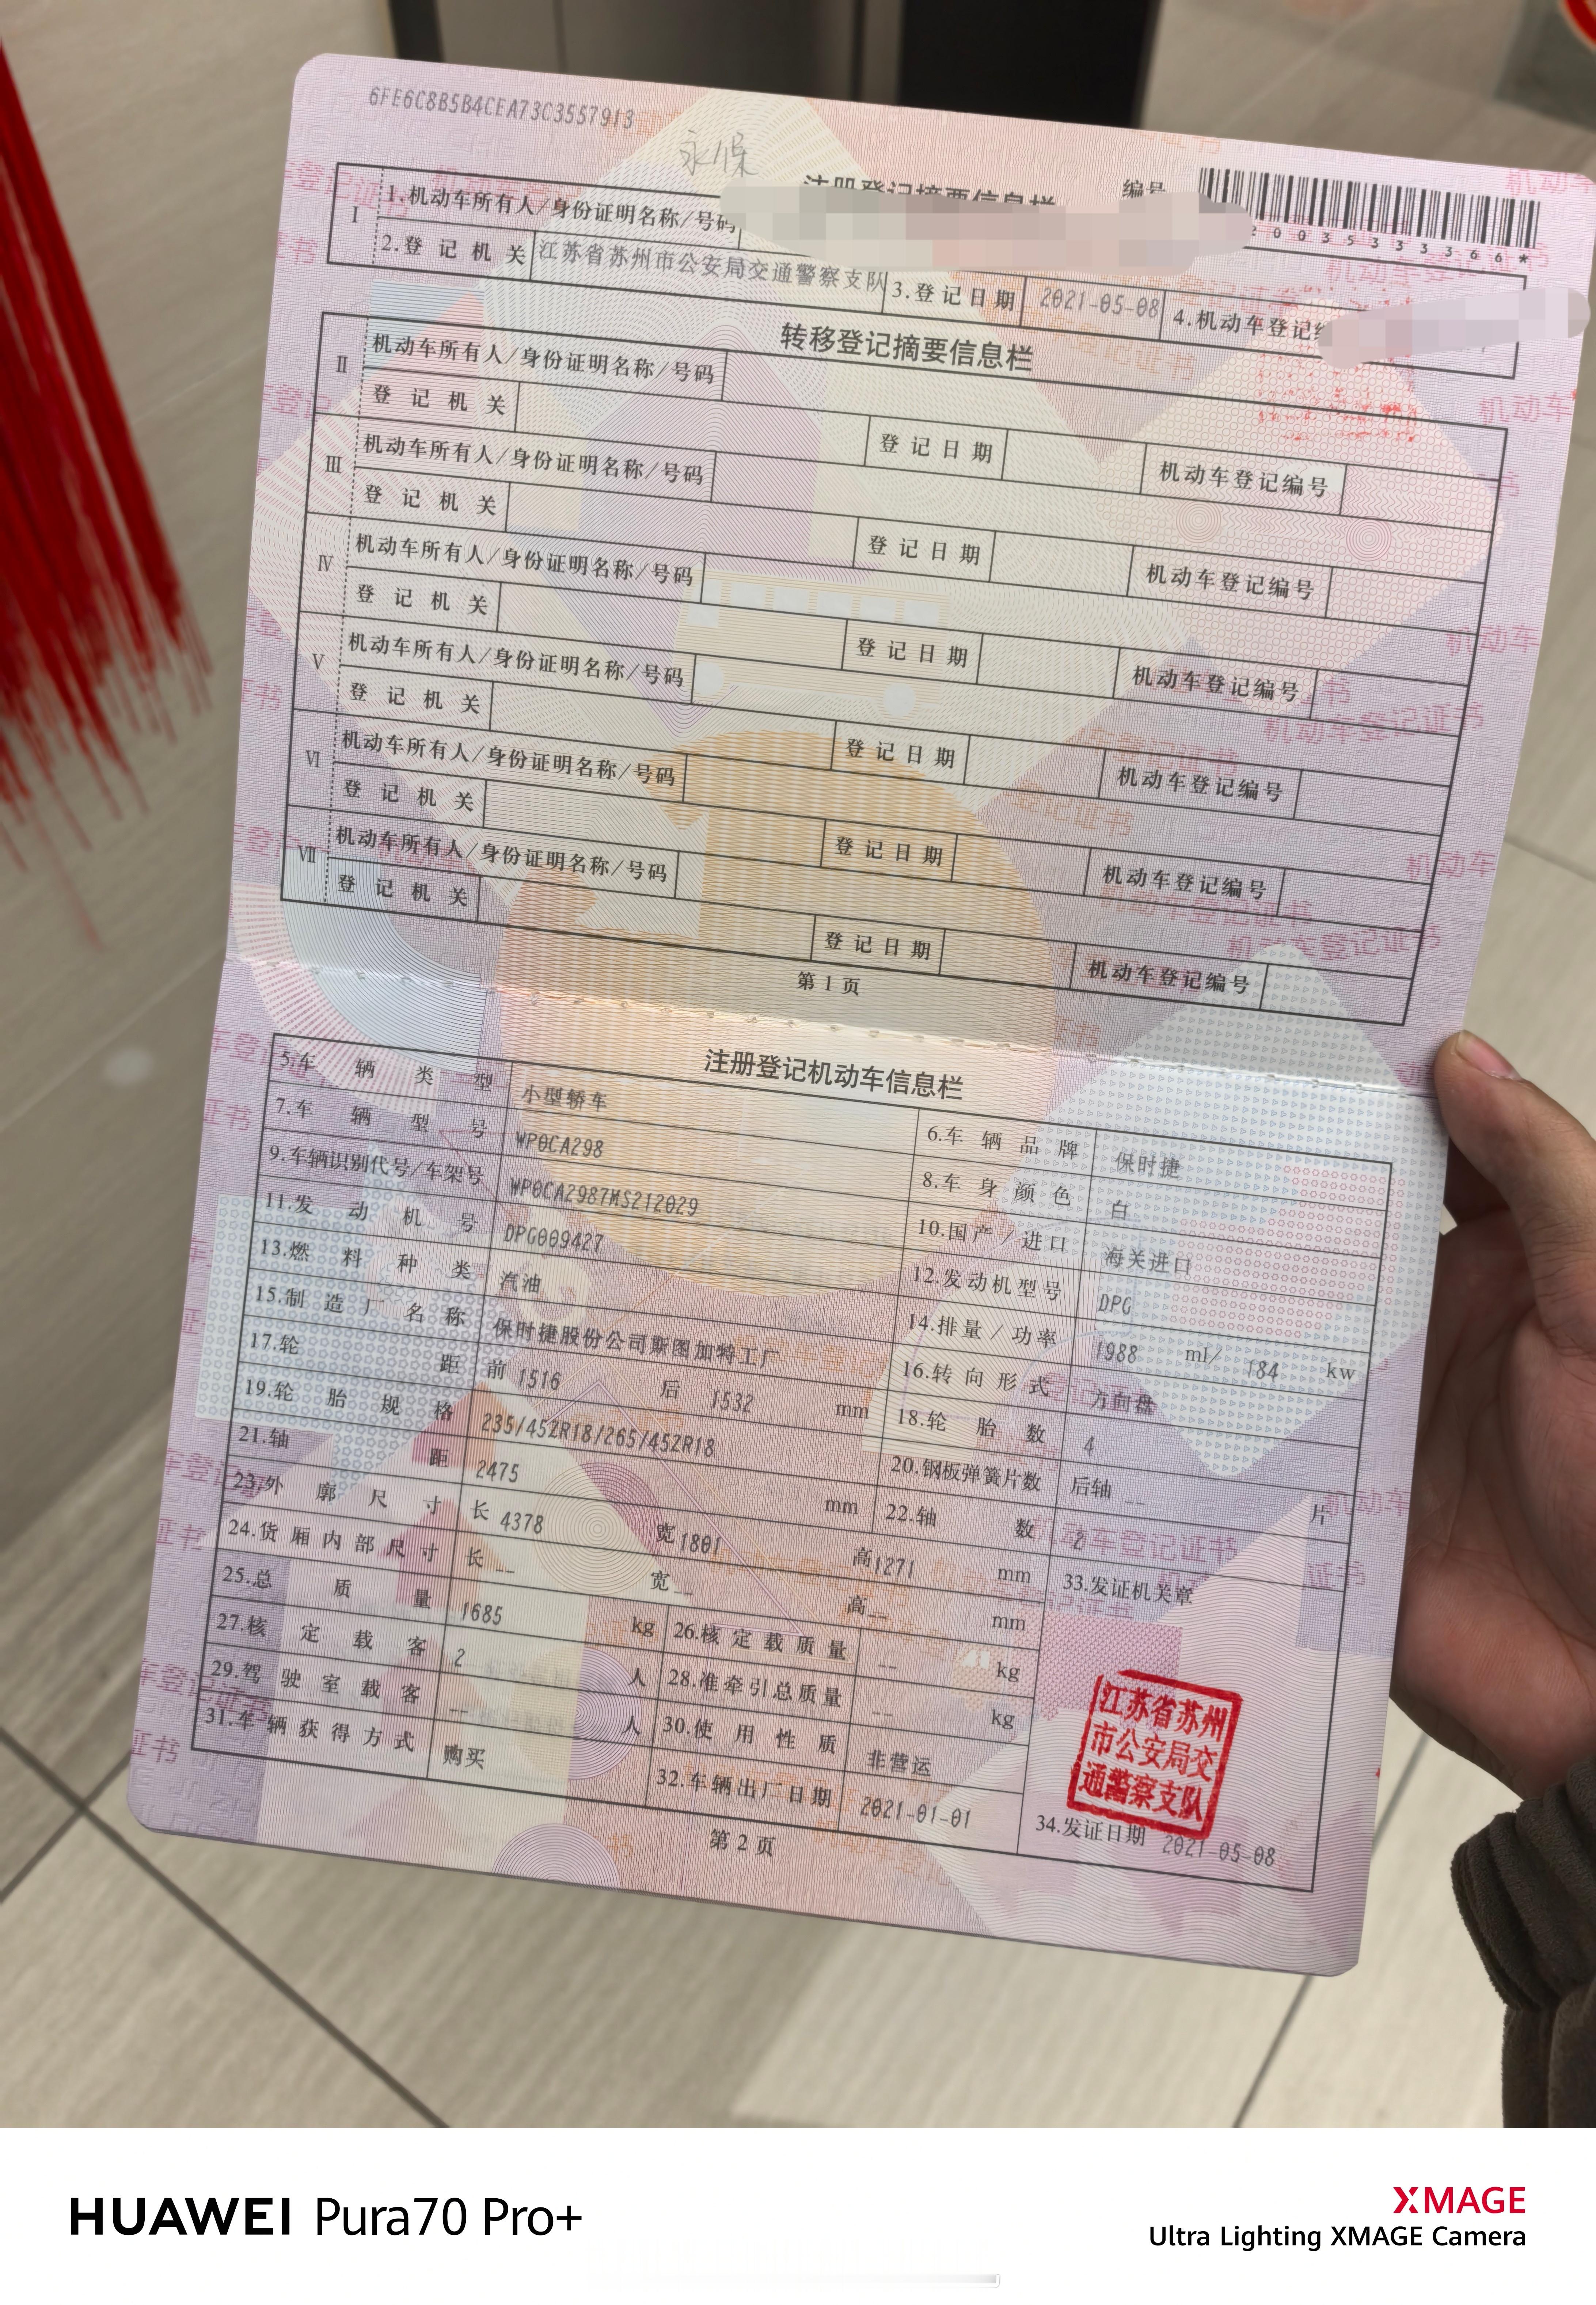 6FE6C8B5B4CEA73C3557913
永保
注册登记摘要信息栏 编号
20035333366*
Ⅰ 1.机动车所有人/身份证明名称/号码
2.登记机关 江苏省苏州市公安局交通警察支队 3.登记日期 2021-05-08 4.机动车登记
转移登记摘要信息栏
Ⅱ 机动车所有人/身份证明名称/号码
登记机关 登记日期 机动车登记编号
Ⅲ 机动车所有人/身份证明名称/号码
登记机关 登记日期 机动车登记编号
Ⅳ 机动车所有人/身份证明名称/号码
登记机关 登记日期 机动车登记编号
Ⅴ 机动车所有人/身份证明名称/号码
登记机关 登记日期 机动车登记编号
Ⅵ 机动车所有人/身份证明名称/号码
登记机关 登记日期 机动车登记编号
Ⅶ 机动车所有人/身份证明名称/号码
登记机关 登记日期 机动车登记编号
第1页
注册登记机动车信息栏
5.车辆类型 小型轿车 6.车辆品牌 保时捷
7.车辆型号 WP0CA298 8.车身颜色 白
9.车辆识别代号/车架号 WP0CA2987MS212029 10.国产/进口 海关进口
11.发动机号 DPG009427 12.发动机型号 DPG
13.燃料种类 汽油 14.排量/功率 1988 ml/ 184 kw
15.制造厂名称 保时捷股份公司斯图加特工厂 16.转向形式 方向盘
17.轮距 前 1516 后 1532 mm 18.轮胎数 4
19.轮胎规格 235/45ZR18/265/45ZR18 20.钢板弹簧片数 后轴 -- 片
21.轴距 2475 mm 22.轴数 2
23.外廓尺寸 长 4378 宽 1801 高 1271 mm 33.发证机关章
24.货厢内部尺寸 长 -- 宽 -- 高 -- mm
25.总质量 1685 kg 26.核定载质量 -- kg
27.核定载客 2 人 28.准牵引总质量 -- kg
29.驾驶室载客 -- 人 30.使用性质 非营运
31.车辆获得方式 购买 32.车辆出厂日期 2021-01-01
江苏省苏州
市公安局交
通警察支队
34.发证日期 2021-05-08
第2页
HUAWEI Pura70 Pro+
XMAGE
Ultra Lighting XMAGE Camera